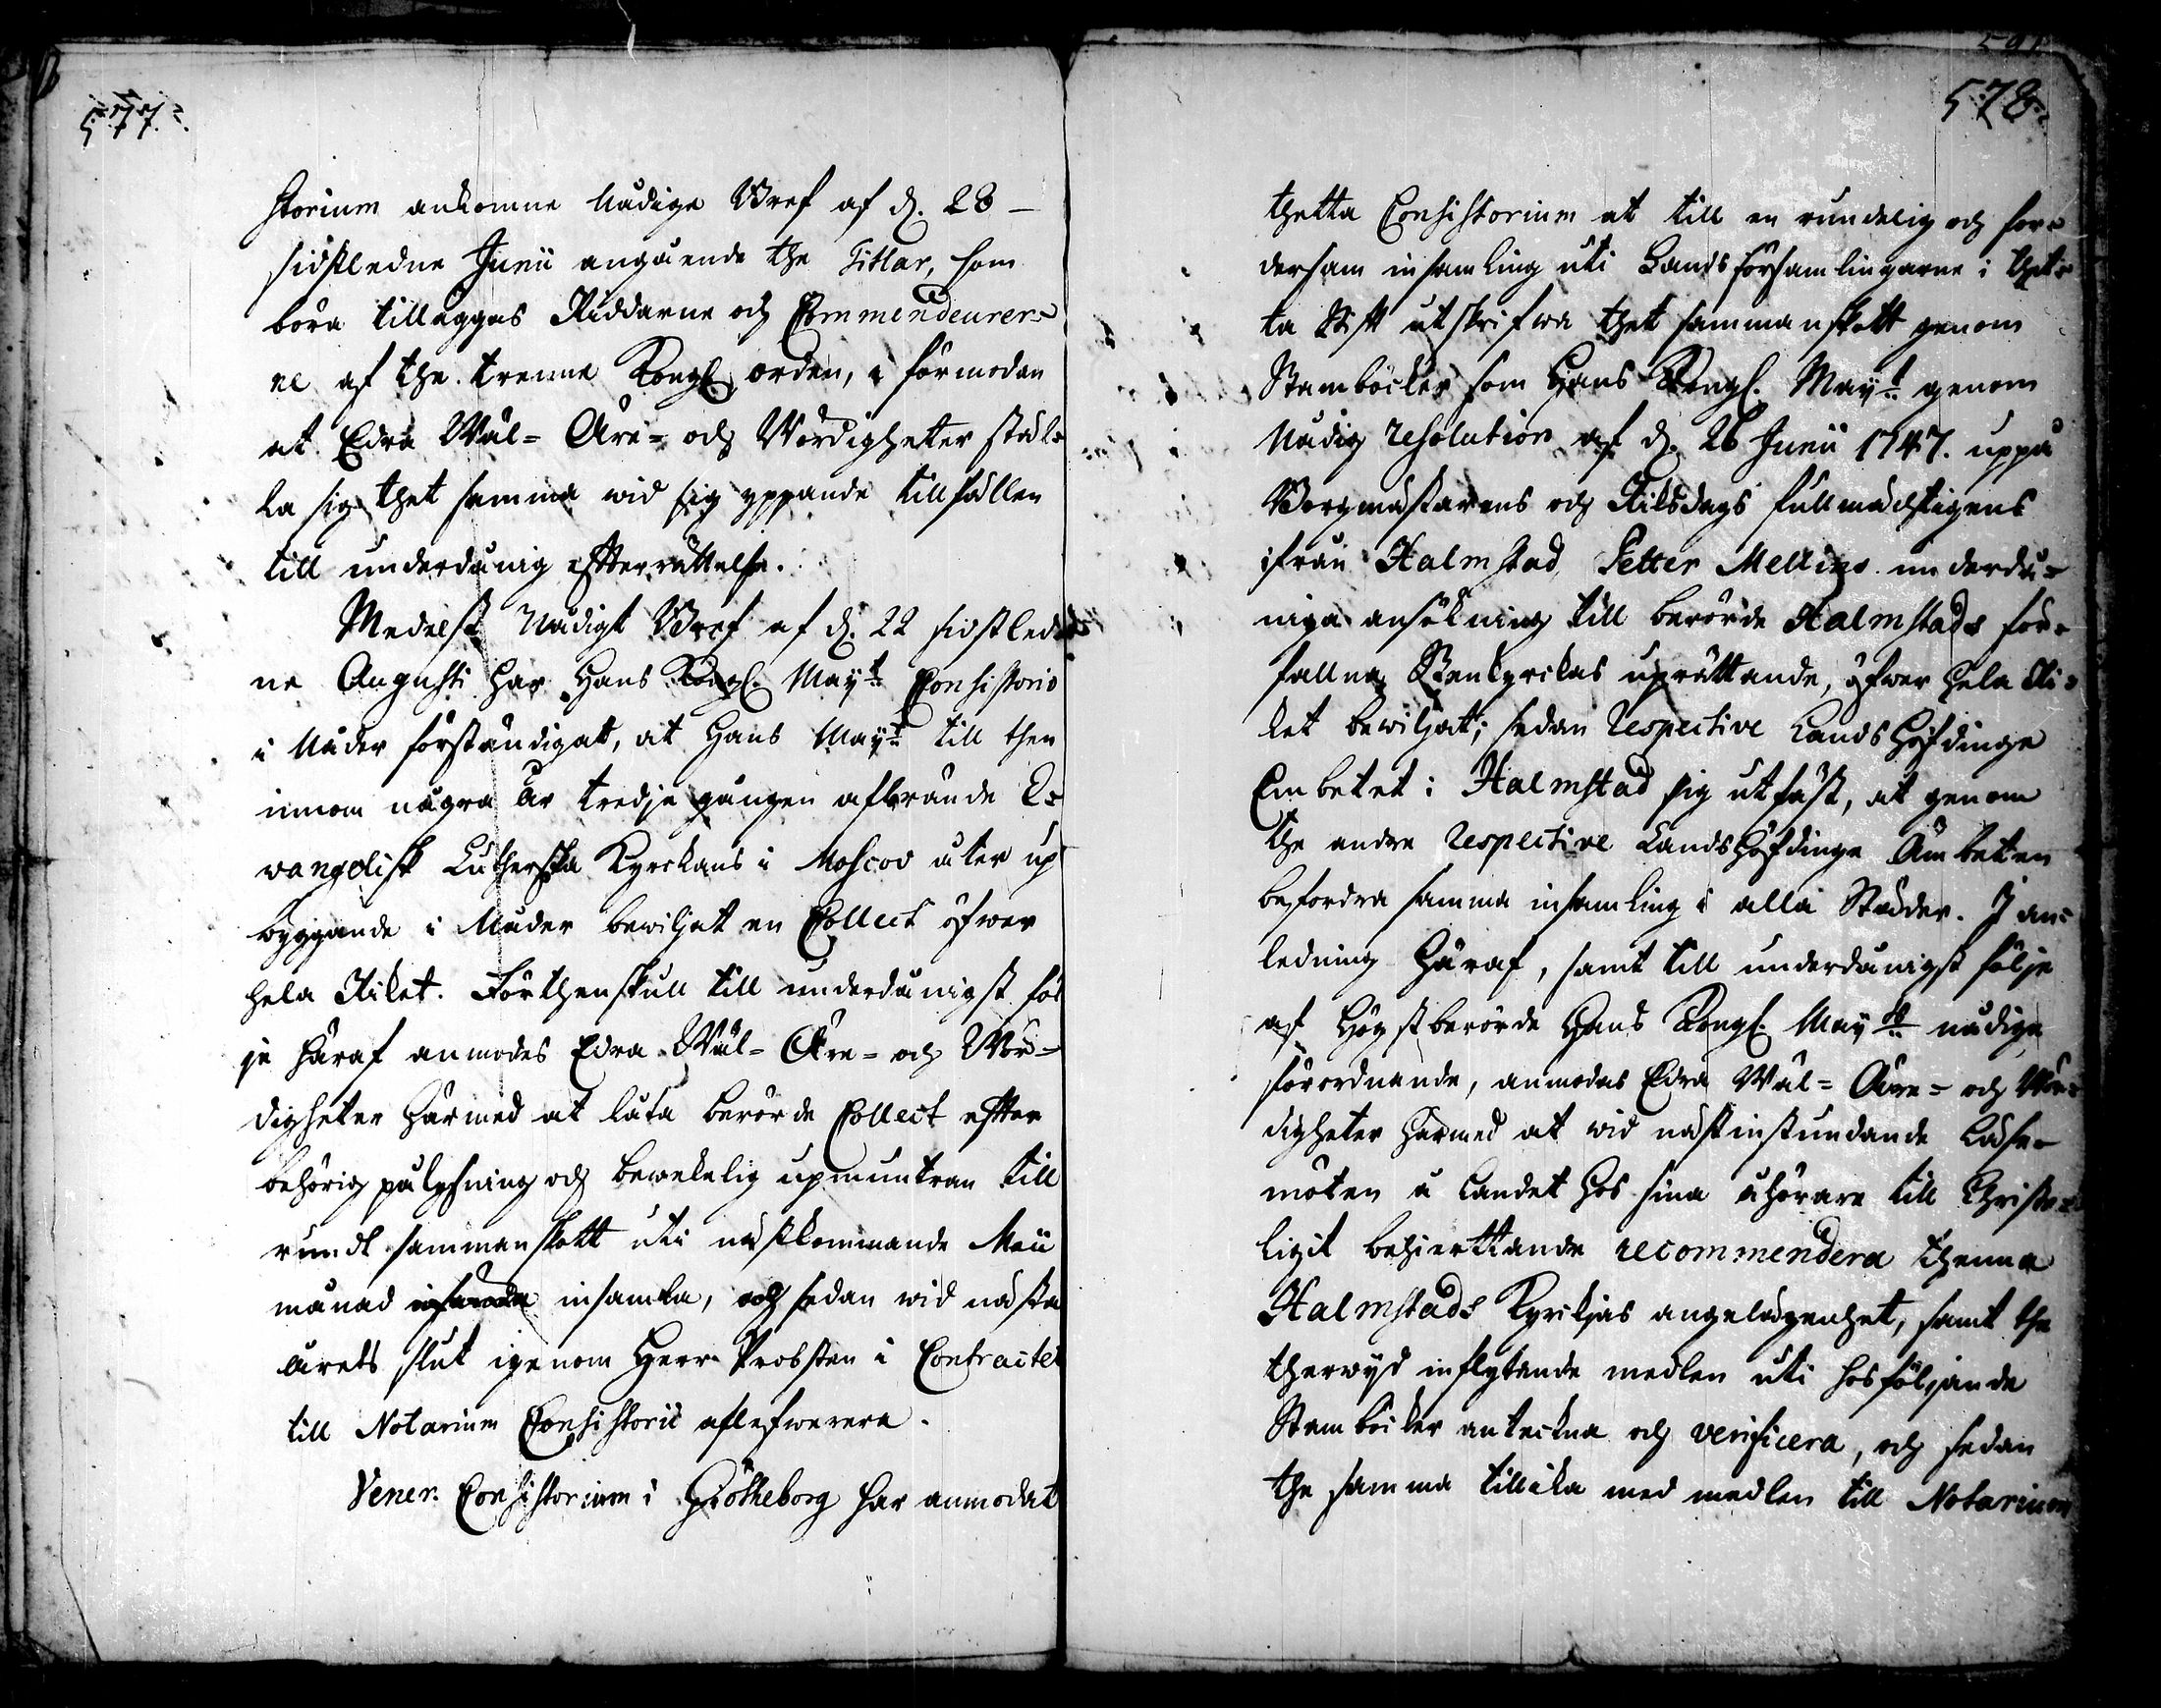 577.
storium ankomne Nådige Bref af d. 28
sidstledne Junii angående the Titlar, som
böra tilläggas Riddarne och Commendeurer-
ne af the trenne Kongl. orden, i förmodan
at Edra Wäl- Äre- och Wördigheter ställ-
la sig thet samma wid sig yppande tillfällen
till underdånig efterrättelse.
Medelst Nådigt Bref af d. 22 sidstled-
ne Augusti har Hans Kongl. Mayt Consistorio
i Nåder förständigat, at Hans Mayt till then
innom några år tredje gången afbrände E-
vangelisk Lutherska Kyrckans i Moscov åter up
byggande i Nåder bewiljat en Collect öfwer
hela Riket. Förthenskull till underdånigst föl
je häraf anmodes Edra Wäl- Äre- och Wör-
digheter härmed at låta berörde Collect efter
behörig pålysning och bewekelig upmuntran till
rundt sammanskott uti nästkommande Maii
månad insamla, och sedan wid nästa
årets slut igenom Herr Probsten i Contractet
till Notarium Consistorii aflefwerera.
Vener. Consistorium i Giötheborg har anmodat
578.
thetta Consistorium at till en rundelig och for-
dersam insamling uti Landsförsamlingarne i thet-
ta Stift utskrifwa thet sammanskott genom
Stamböcker som Hans Kongl. Mayt genom
Nådig resolution af d. 26 Junii 1747. uppå
Borgmästarens och Riksdags fullmächtigens
ifrån Halmstad, Petter Mellins underdå-
niga ansökning till berörde Halmstads för-
fallna Stenkyrkas uprättande, öfwer hela Ri-
ket bewiljat; sedan respective Landshöfdinge
Embetet i Halmstad sig utfäst, at genom
the andre respective Landshöfdinge Ämbeten
befordra samma insamling i alla Städer. I an-
ledning häraf, samt till underdånigst följe
af Högstberörde Hans Kongl. Mayts nådige
förordnande, anmodas Edra Wäl- Äre- och Wör-
digheter härmed at wid nästinstundande Läse-
möten å Landet hos sina åhörare till Christe-
ligit behierttande recommendera thenna
Halmstads Kyrkjas angelägenhet, samt the
therwyd inflytande medlen uti hosföljande
Stamböcker anteckna och verificera, och sedan
the samma tillika med medlen till Notarium